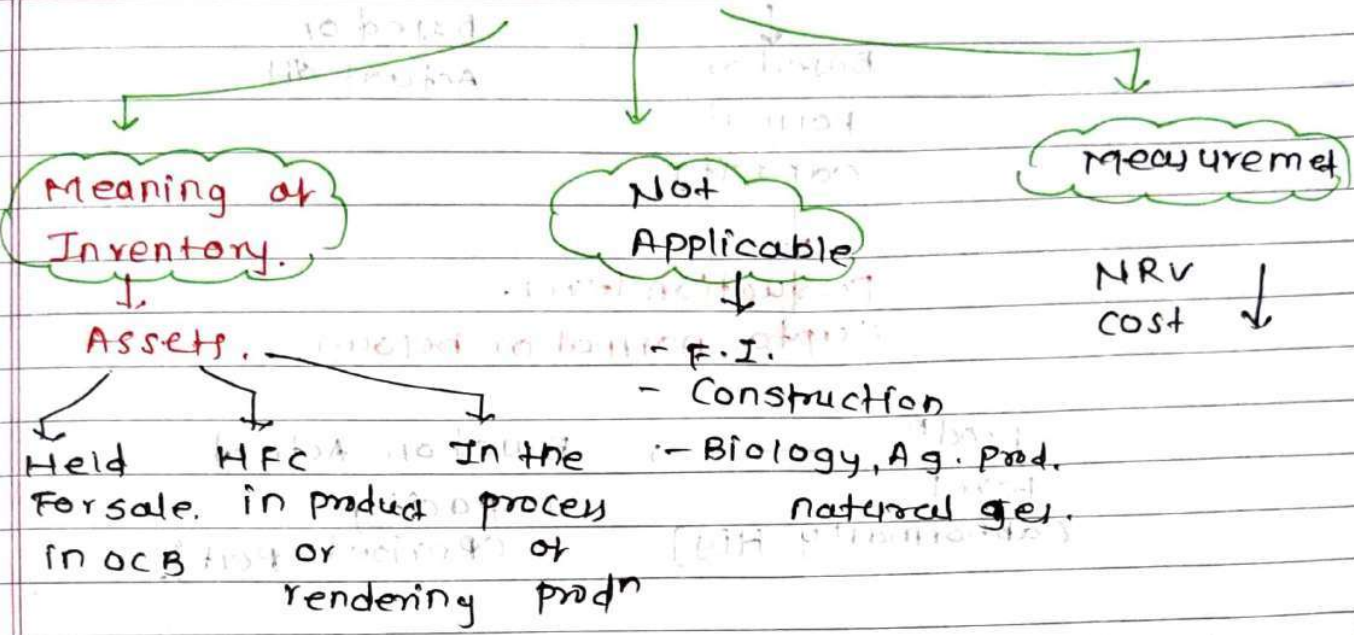 Meaning of
Inventory.
Assets.
Held
For sale.
in OCB
HFC
in product
or
rendering
In the
process
of
prodn
Not
Applicable
- F.I.
- Construction
- Biology, Ag. prod.
natural ges.
Measuremet
NRV
cost